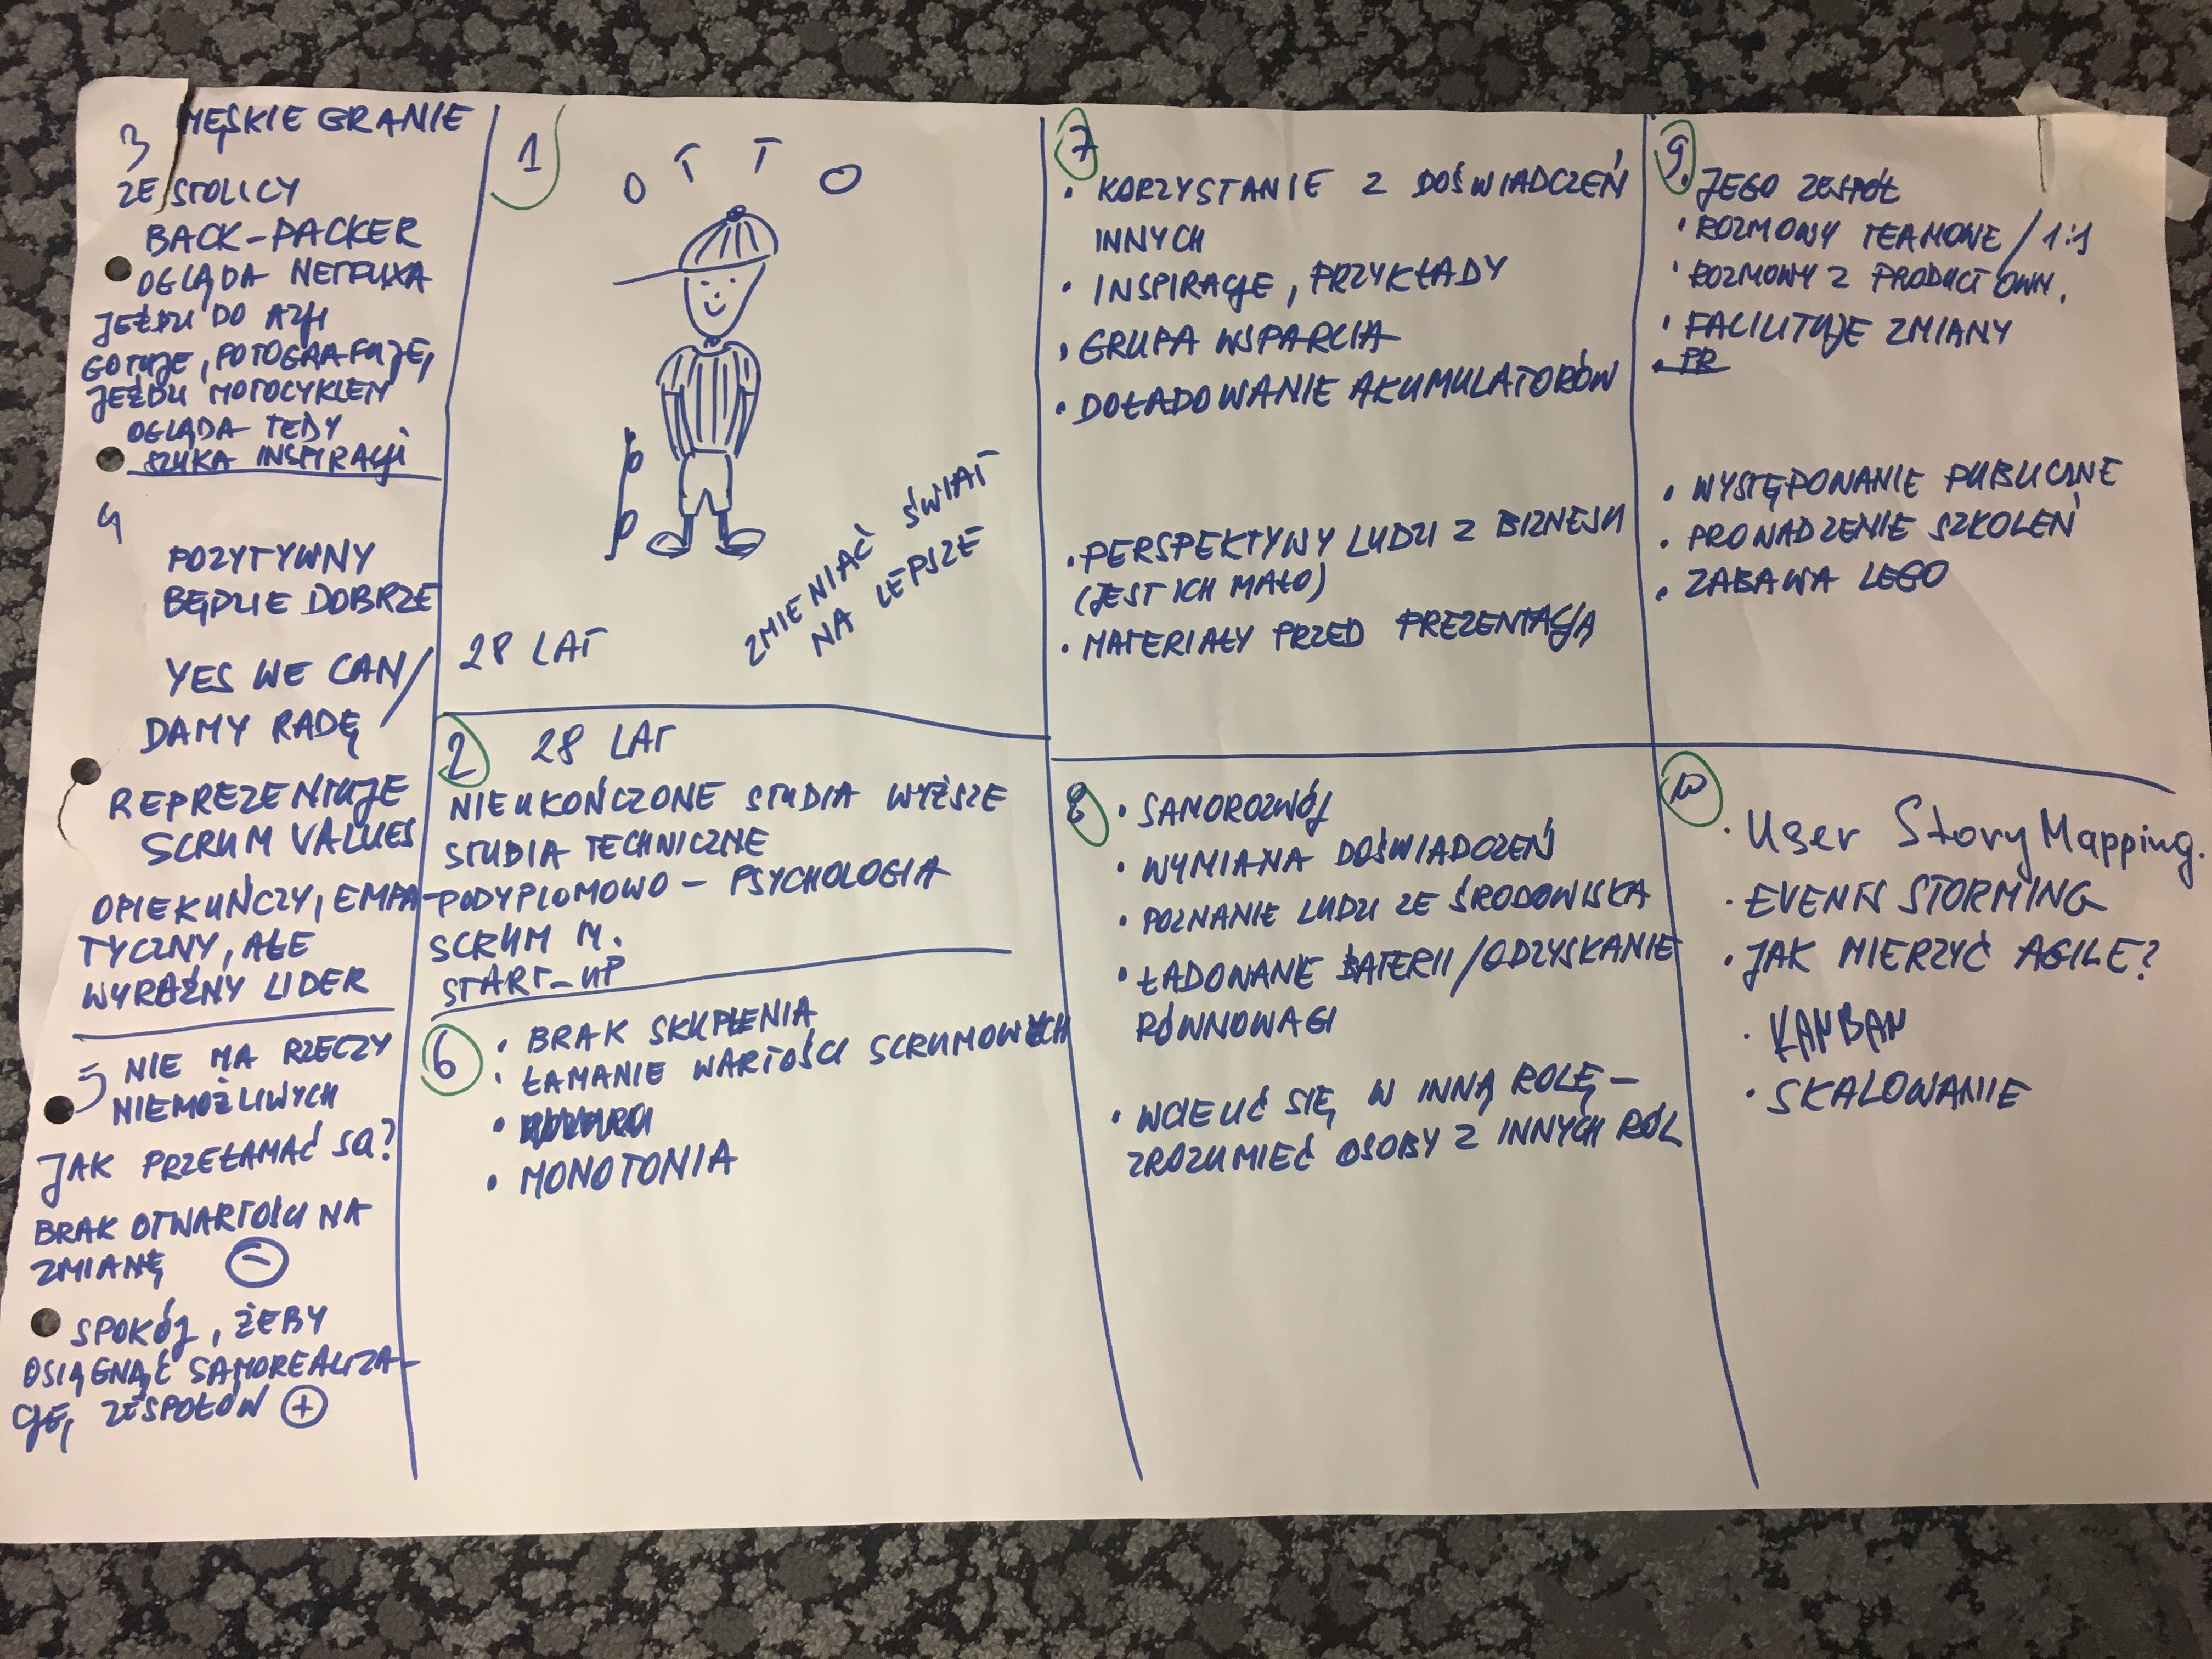 3 MĘSKIE GRANIE
ZE STOLICY
BACK-PACKER
OGLĄDA NETFLIXA
JEŹDZI DO AZJI
GOTUJE, FOTOGRAFUJE,
JEŹDZI MOTOCYKLEM
OGLĄDA TEDY
SZUKA INSPIRACJI
4
POZYTYWNY
BĘDZIE DOBRZE
YES WE CAN/
DAMY RADĘ
REPREZENTUJE
SCRUM VALUES
OPIEKUŃCZY, EMPA-
TYCZNY, ALE
WYRAŹNY LIDER
5 NIE MA RZECZY
NIEMOŻLIWYCH
JAK PRZEŁAMAĆ SQ?
BRAK OTWARTOŚCI NA
ZMIANĘ -
SPOKÓJ, ŻEBY
OSIĄGNĄĆ SAMOREALIZA-
CJĘ ZESPOŁÓW +
1
OTTO
ZMIENIAĆ ŚWIAT
NA LEPSZE
28 LAT
2 28 LAT
NIEUKOŃCZONE STUDIA WYŻSZE
STUDIA TECHNICZNE
PODYPLOMOWO - PSYCHOLOGIA
SCRUM M.
START-UP
6 • BRAK SKUPIENIA
• ŁAMANIE WARTOŚCI SCRUMOWYCH
• MONOTONIA
7
• KORZYSTANIE Z DOŚWIADCZEŃ
INNYCH
• INSPIRACJE, PRZYKŁADY
• GRUPA WSPARCIA
• DOŁADOWANIE AKUMULATORÓW
• PERSPEKTYWY LUDZI Z BIZNESU
(JEST ICH MAŁO)
• MATERIAŁY PRZED PREZENTACJĄ
8 • SAMOROZWÓJ
• WYMIANA DOŚWIADCZEŃ
• POZNANIE LUDZI ZE ŚRODOWISKA
• ŁADOWANIE BATERII/ODZYSKANIE
RÓWNOWAGI
• WCIELIĆ SIĘ W INNĄ ROLĘ -
ZROZUMIEĆ OSOBY Z INNYCH RÓL
9
• JEGO ZESPÓŁ
• ROZMOWY TEAMOWE / 1:1
• ROZMOWY Z PRODUCT OWN.
• FACILITUJE ZMIANY
• PR
• WYSTĘPOWANIE PUBLICZNE
• PROWADZENIE SZKOLEŃ
• ZABAWA LEGO
10
• User Story Mapping.
• EVENTS STORMING
• JAK MIERZYĆ AGILE?
• KANBAN
• SKALOWANIE